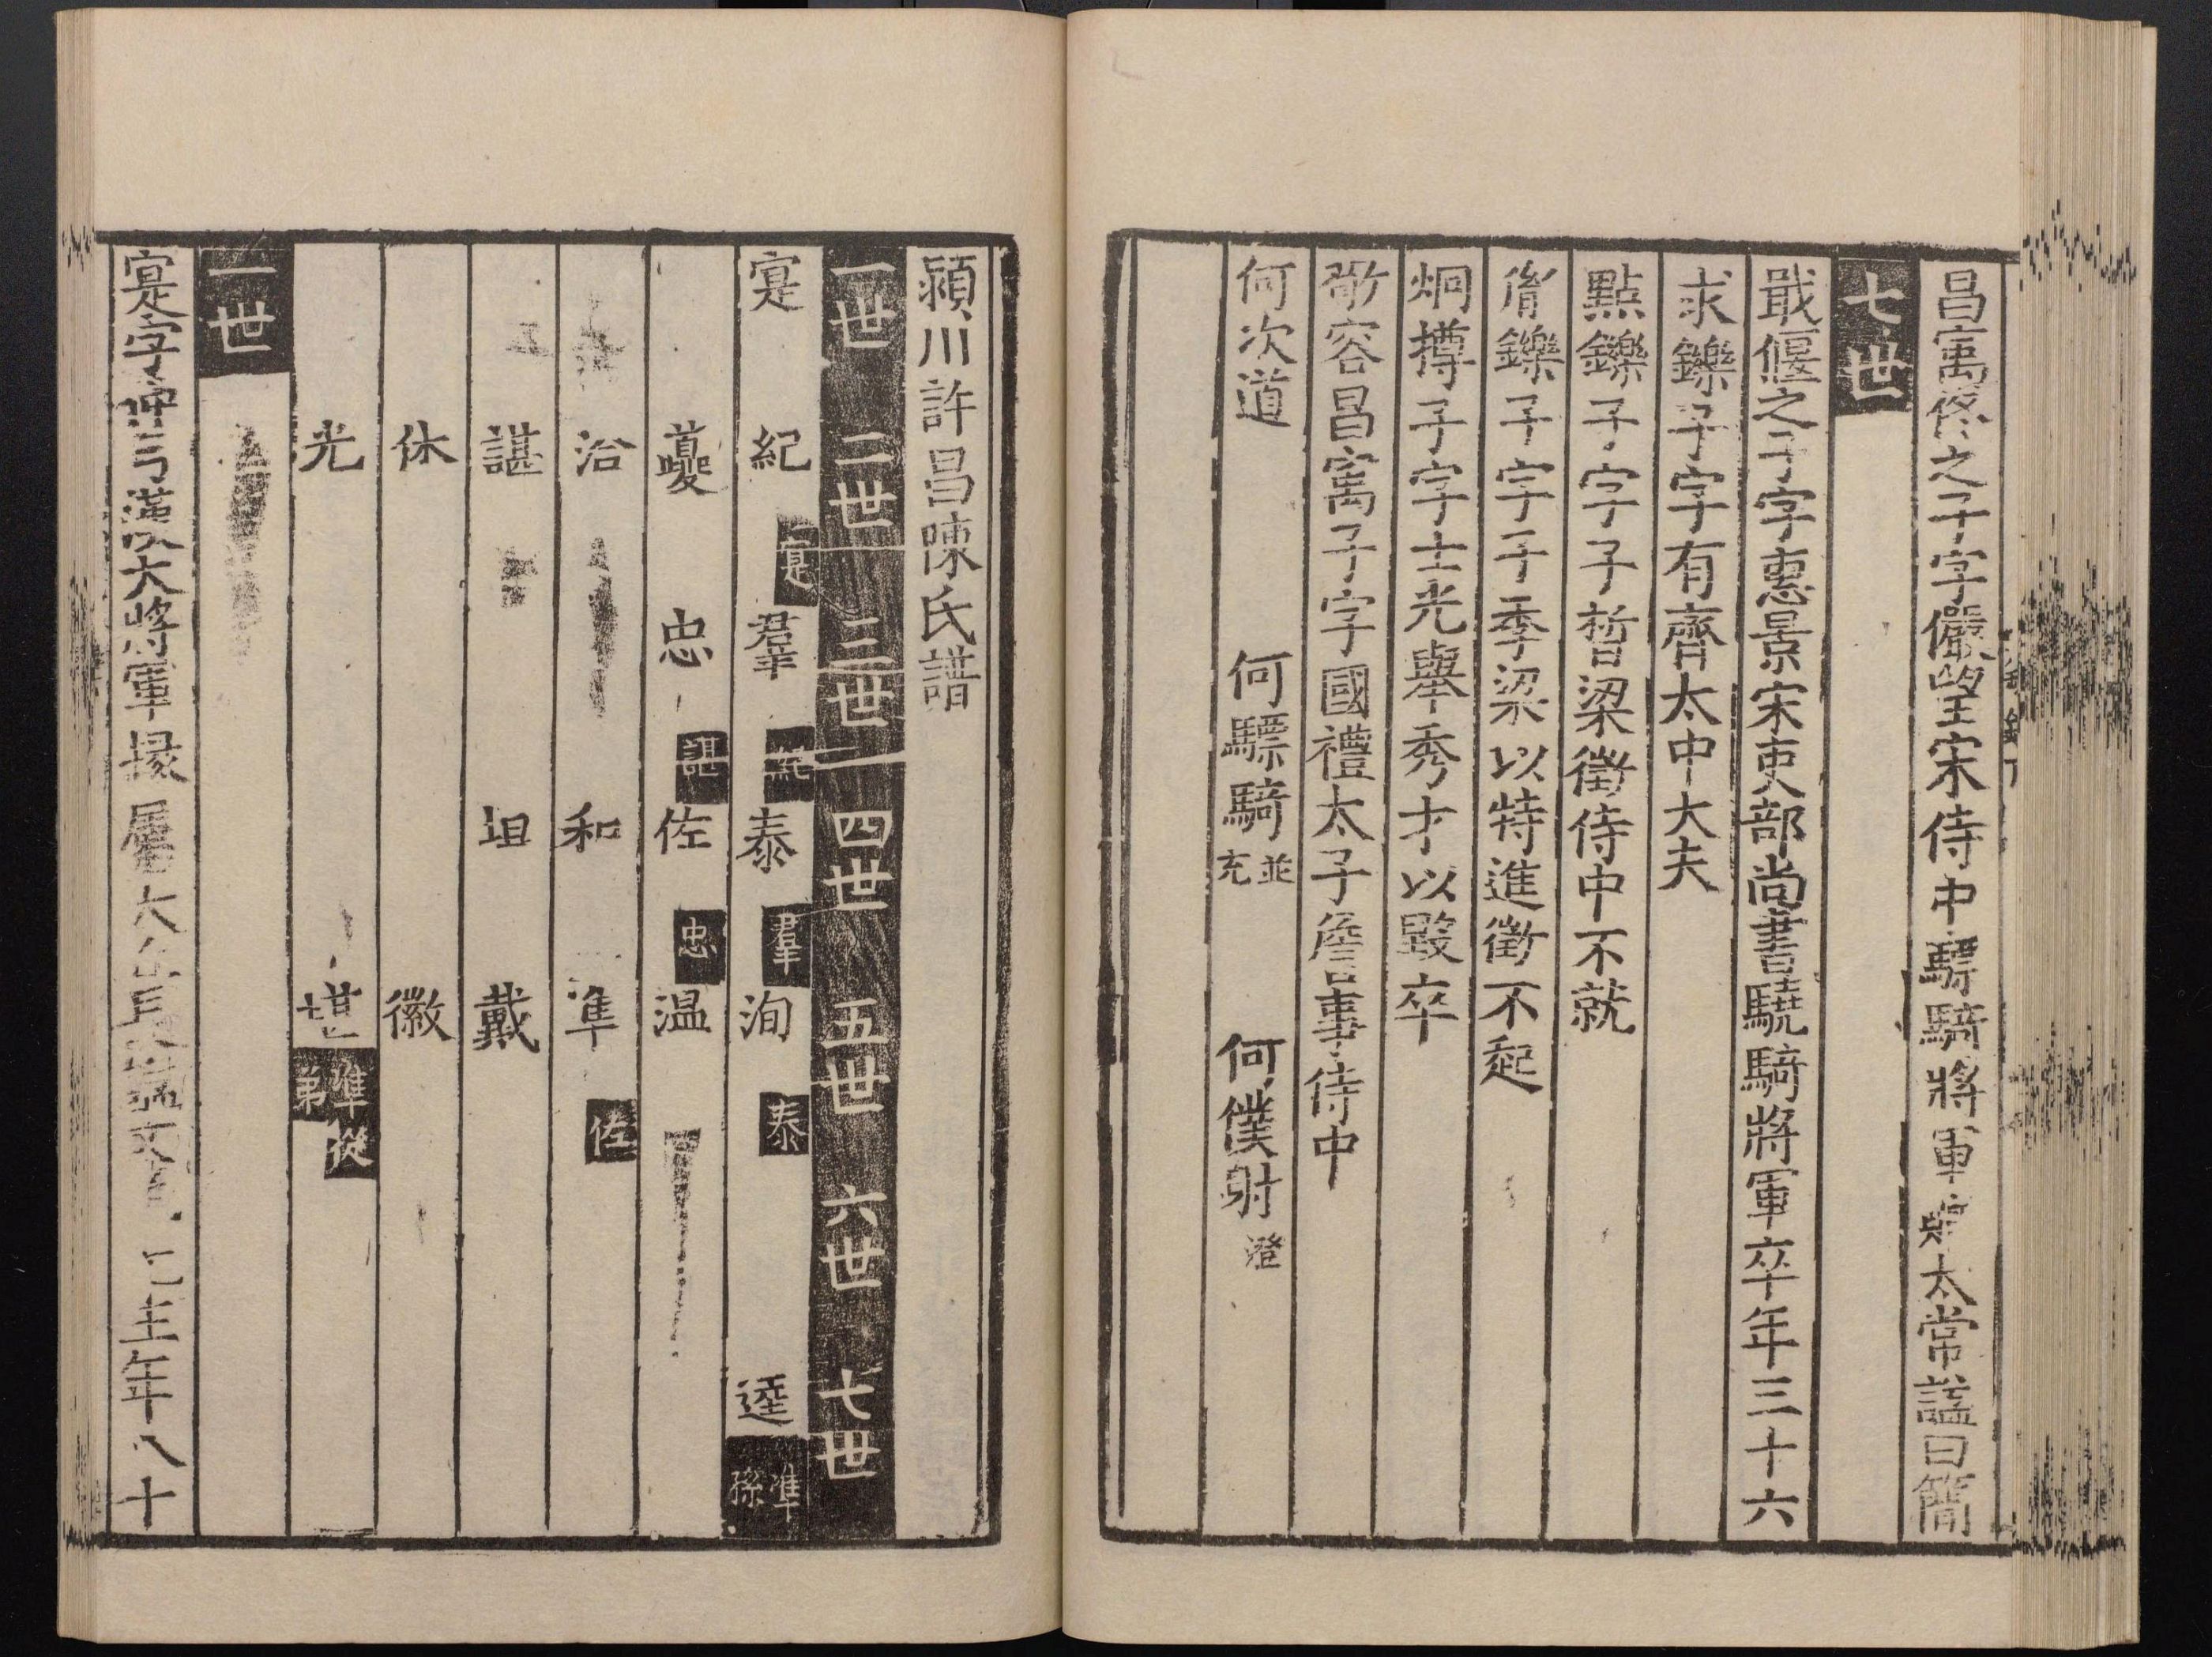 昌㝢佟之子字儼望宋侍中驃騎將軍太常諡曰簡
七世
戢偃之子字惠景宋吏部尚書驍騎將軍卒年三十六
求鑠子字有齊太中大夫
點鑠子字子晳梁徵侍中不就
胤鑠子字子季梁以特進徵不起
炯撙子字士光舉秀才以毀卒
敬容昌㝢子字國禮太子詹事侍中
何次道 何驃騎並充 何僕射澄
潁川許昌陳氏譜
一世 二世 三世 四世 五世 六世 七世
寔 紀寔 羣紀 泰羣 洵泰 逵準孫
夔 忠諶 佐忠 温
洽 和 準佐
諶 坦 戴
休 徽
光 堪準從弟
一世
寔字仲弓漢大將軍掾屬 年八十